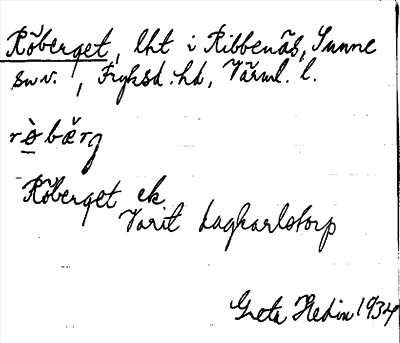 Röberget, lht i Ribbenäs, Sunne
sn., Fryksd. hd, Värml. l.
rø̀bærg
Röberget ek.
Varit dagkarlstorp
Greta Hedin 1934